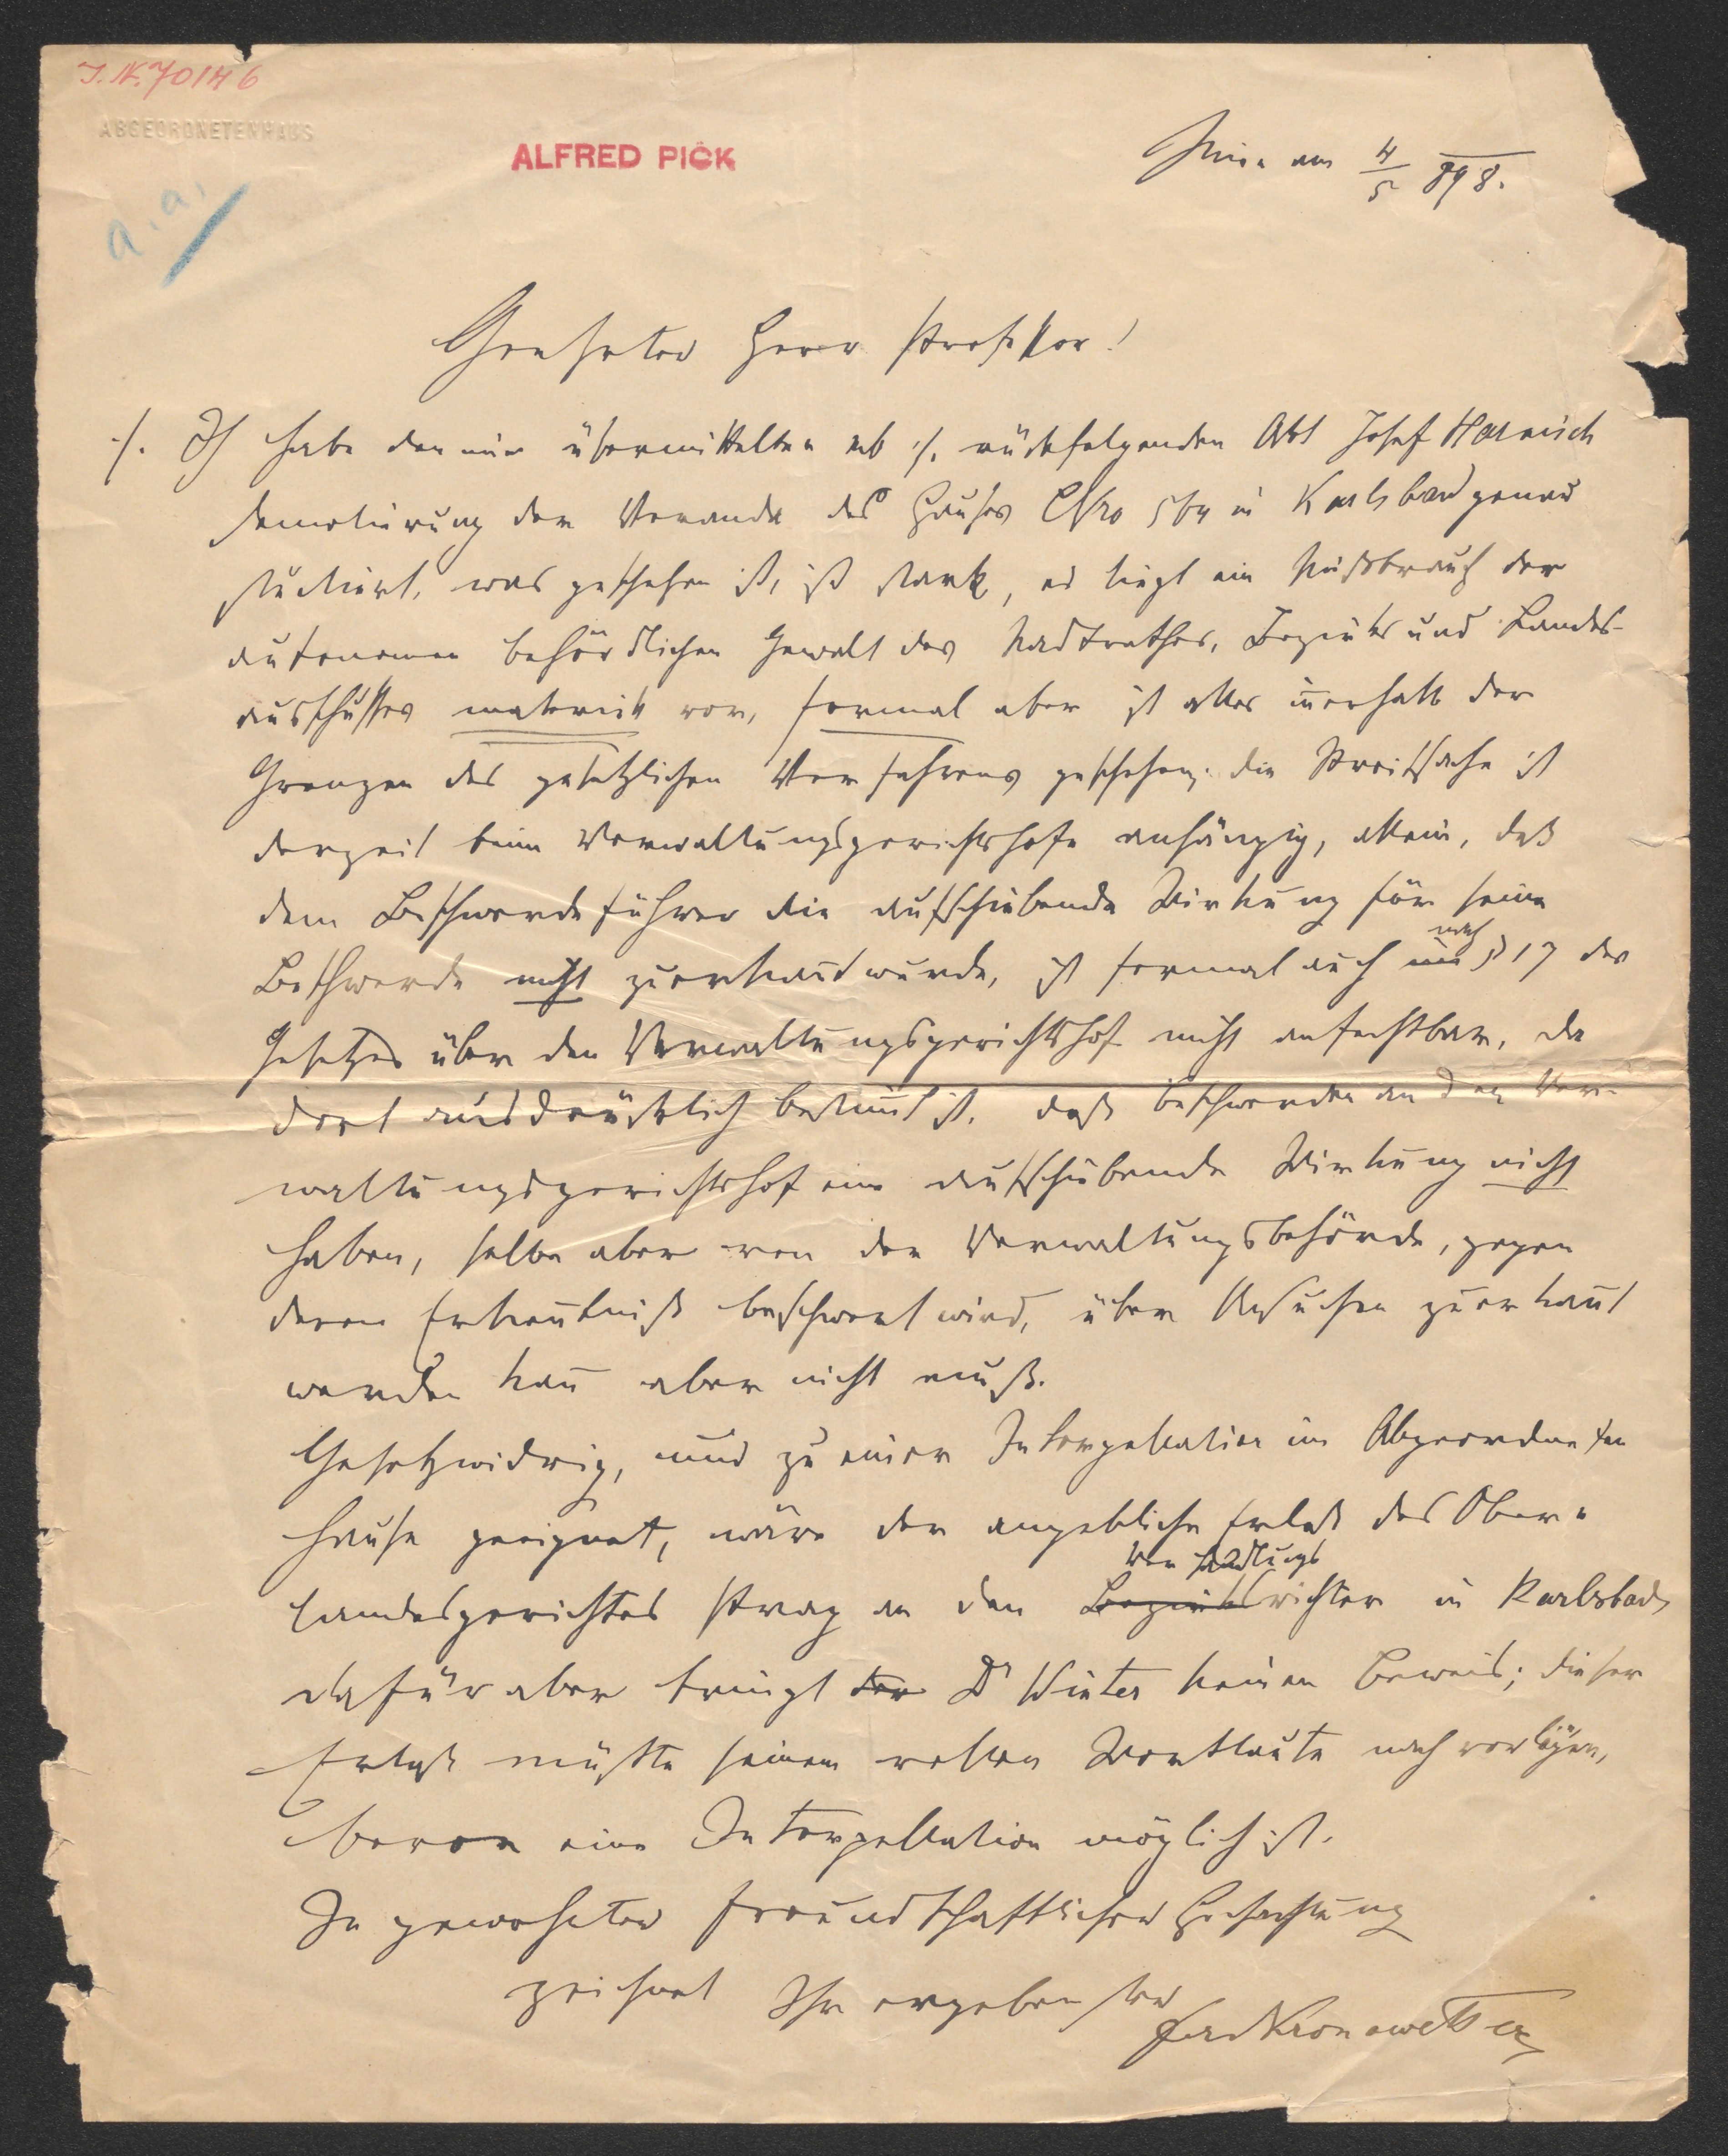 J. N. 70146
ABGEORDNETENHAUS
ALFRED PICK
a. a.
Wien am 4/5 898.
Geehrter Herr Professor!
./. Ich habe den mir übermittelten sub ./. rückfolgenden Akt Josef Harnisch
Demolirung der Veranda des Hauses CNro 564 in Karlsbad genau
studiert, was geschehen ist, ist stark, es liegt ein Mißbrauch der
autonomen behördlichen Gewalt des Stadtrathes, Bezirks und Landes-
ausschußes materiell vor, formal aber ist alles innerhalb der
Grenzen des gesetzlichen Verfahrens geschehen; die Streitsache ist
derzeit beim Verwaltungsgerichtshofe anhängig, allein, daß
dem Beschwerdeführer die aufschiebende Wirkung für seine
Beschwerde nicht zuerkannt wurde, ist formal auch nach § 17 des
Gesetzes über den Verwaltungsgerichtshof nicht anfechtbar, da
dort ausdrücklich bestimmt ist, daß Beschwerden an den Ver-
waltungsgerichtshof eine aufschiebende Wirkung nicht
haben, selbe aber von der Verwaltungsbehörde, gegen
deren Erkenntniß beschwert wird, über Ansuchen zuerkannt
werden kann aber nicht muß.
Gesetzwidrig, und zu einer Interpellation im Abgeordneten
hause geeignet, wäre der angebliche Erlaß des Ober-
Verhandlungs
landesgerichtes Prag an den Bezirksrichter in Karlsbad,
dafür aber bringt der Dr Winter keinen Beweis; dieser
Erlaß müßte seinem vollen Wortlaute nach vorliegen,
bevor eine Interpellation möglich ist.
In gewohnter freundschaftlicher Hochachtung
zeichnet Ihr ergebenster
Ferd Kronawetter